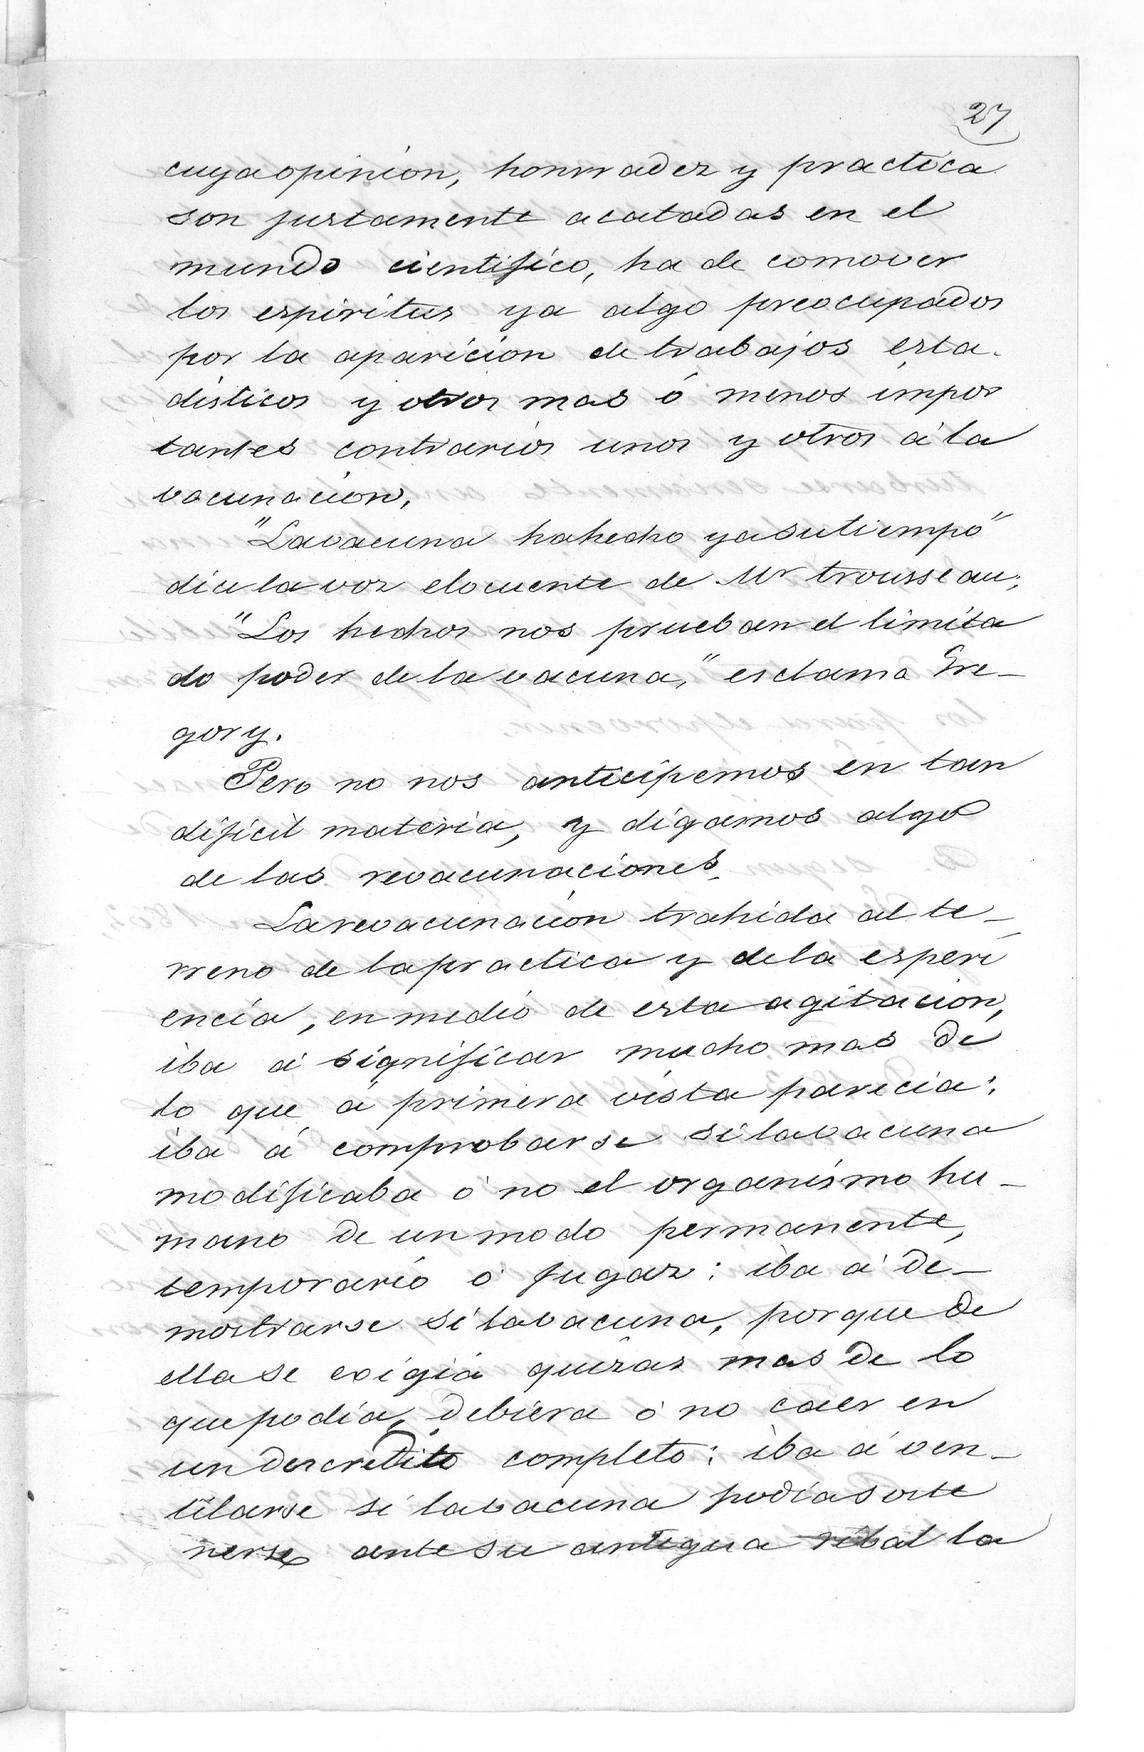 27
cuya opinion, honrradez y practica
son justamente acatadas en el
mundo cientifico, ha de comover
los espiritus ya algo preocupados
por la aparicion de trabajos esta-
disticos y otros mas ó menos impor
tantes contrarios unos y otros á la
vacunacion.
"La vacuna ha hecho ya su tiempo"
dice la voz elocuente de Mr trousseau;
"Los hechos nos prueban el limita
do poder de la vacuna," esclama Gre-
gory.
Pero no nos anticipemos en tan
dificil materia, y digamos algo
de las revacunaciones.
La revacunacion trahida al te-
rreno de la practica y de la esperi
encia, en medio de esta agitacion,
iba á significar mucho mas de
lo que á primera vista parecia:
iba á comprobarse si la vacuna
modificaba ó no el organismo hu-
mano de un modo permanente,
temporario ó fugaz: iba á de-
mostrarse si la vacuna, porque de
ella se exigiá quizas mas de lo
que podia, debiera ó no caer en
un descredito completo: iba á ven-
tilarse si la vacuna podia soste
nerse ante su antigua ribal la